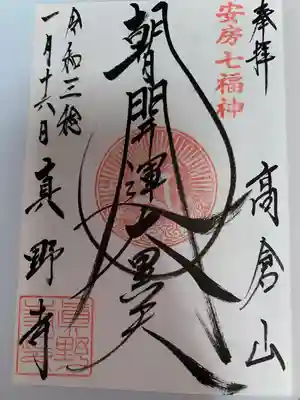 奉拝
高倉山
安房七福神
朝開運大黒天
令和三稔
一月十六日
真野寺